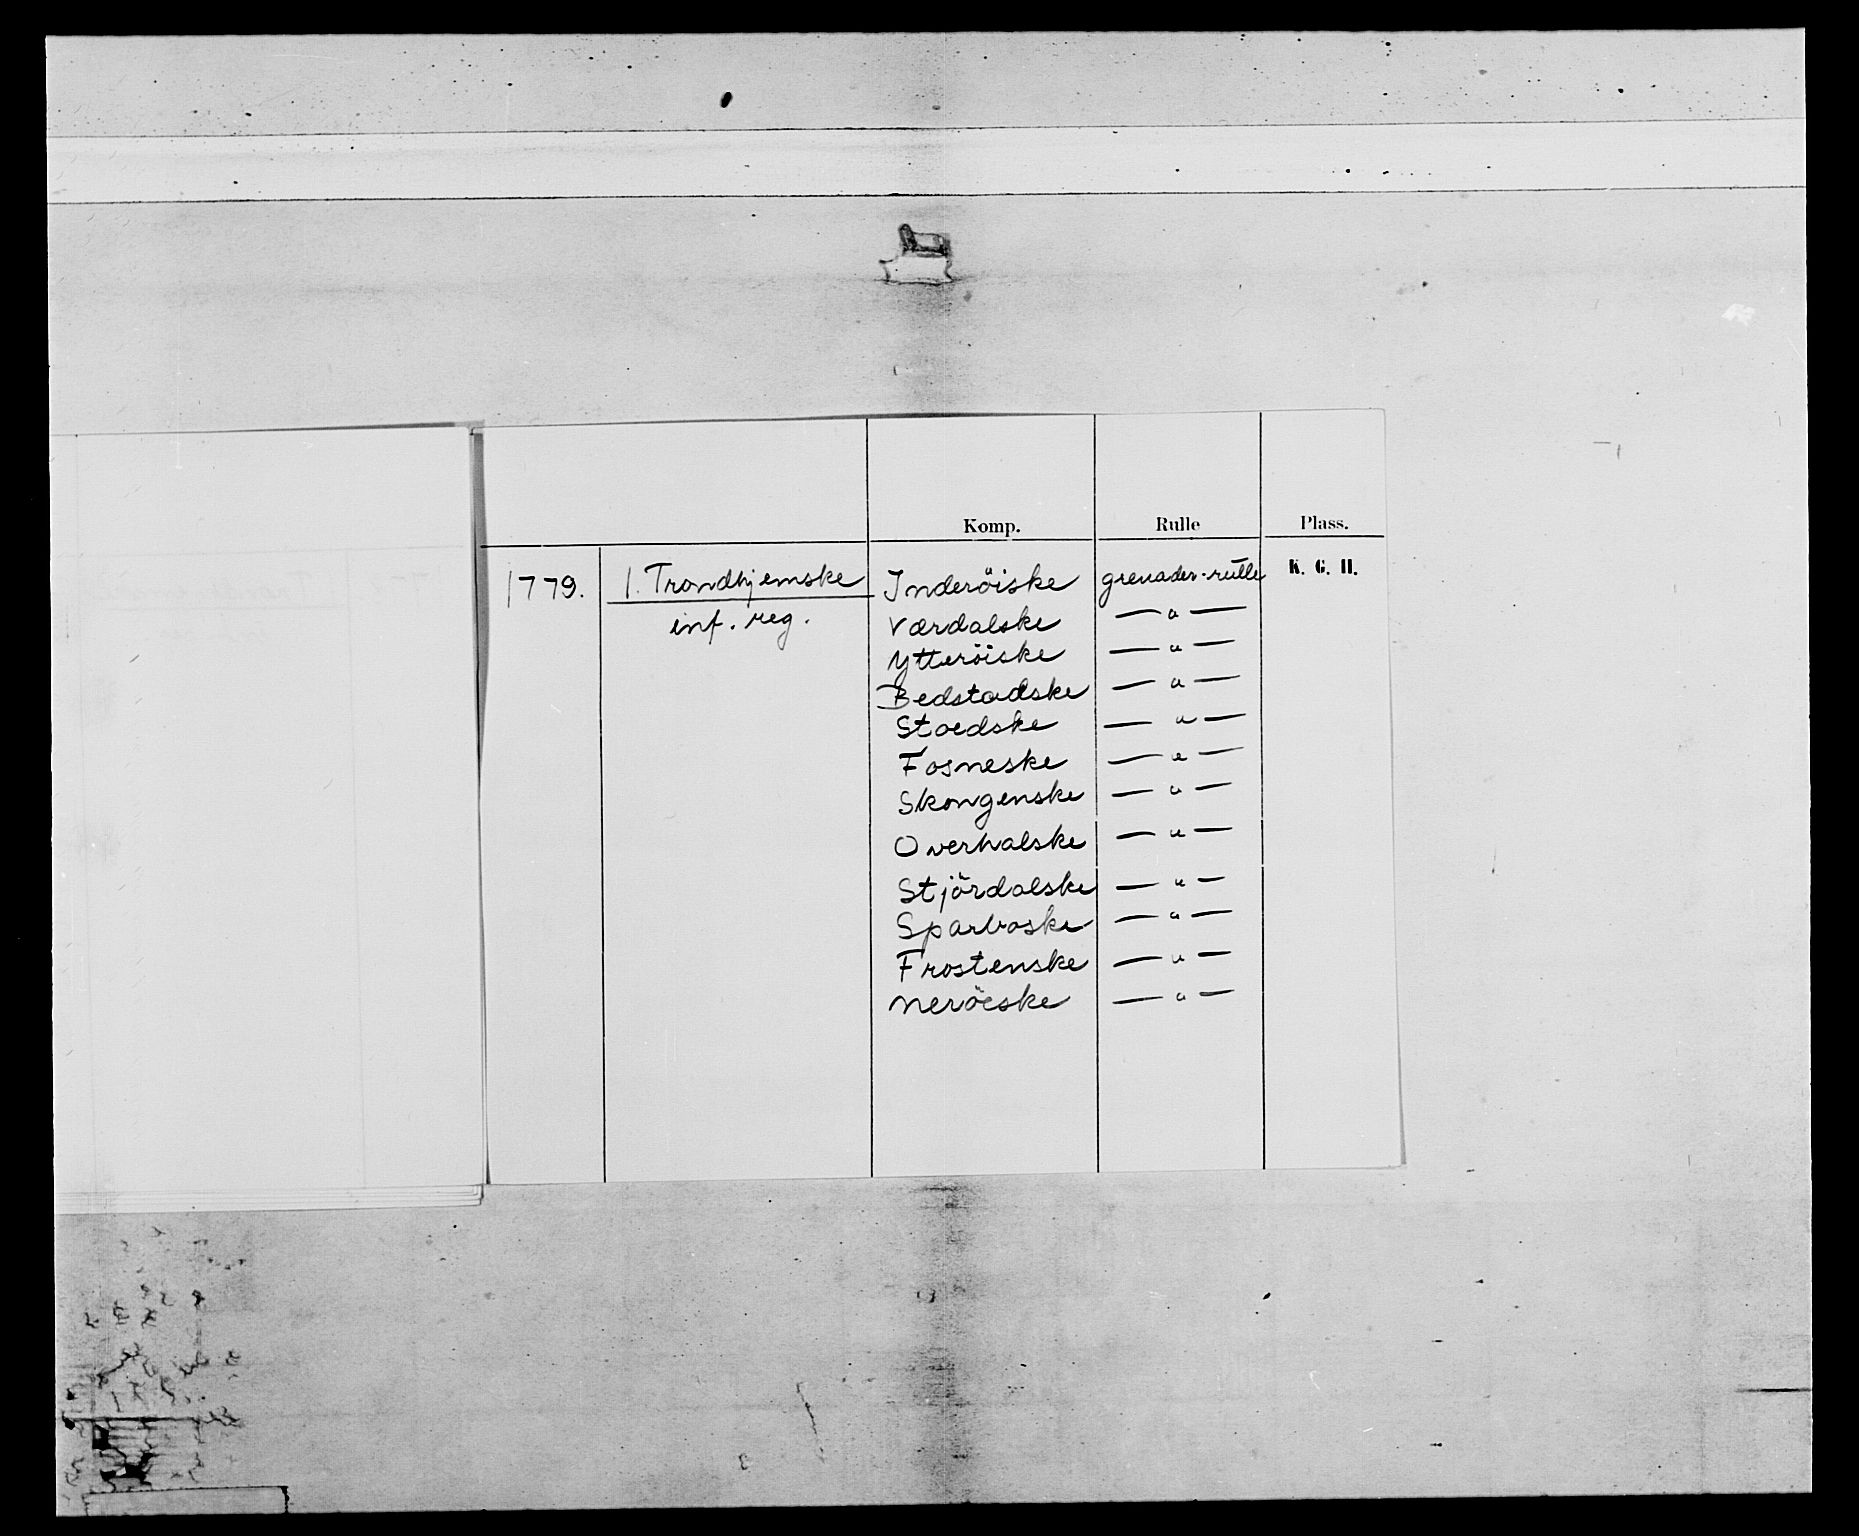 Komp. Rulle Plass.
1779. 1. Trondhjemske Inderöiske grenader-rulle K. G. H.
inf. reg. Værdalske — " —
Ytteröiske — " —
Bedstadske — " —
Stoedske — " —
Fosneske — " —
Skongenske — " —
Overhalske — " —
Stjördalske — " —
Sparboske — " —
Frostenske — " —
Neröeske — " —